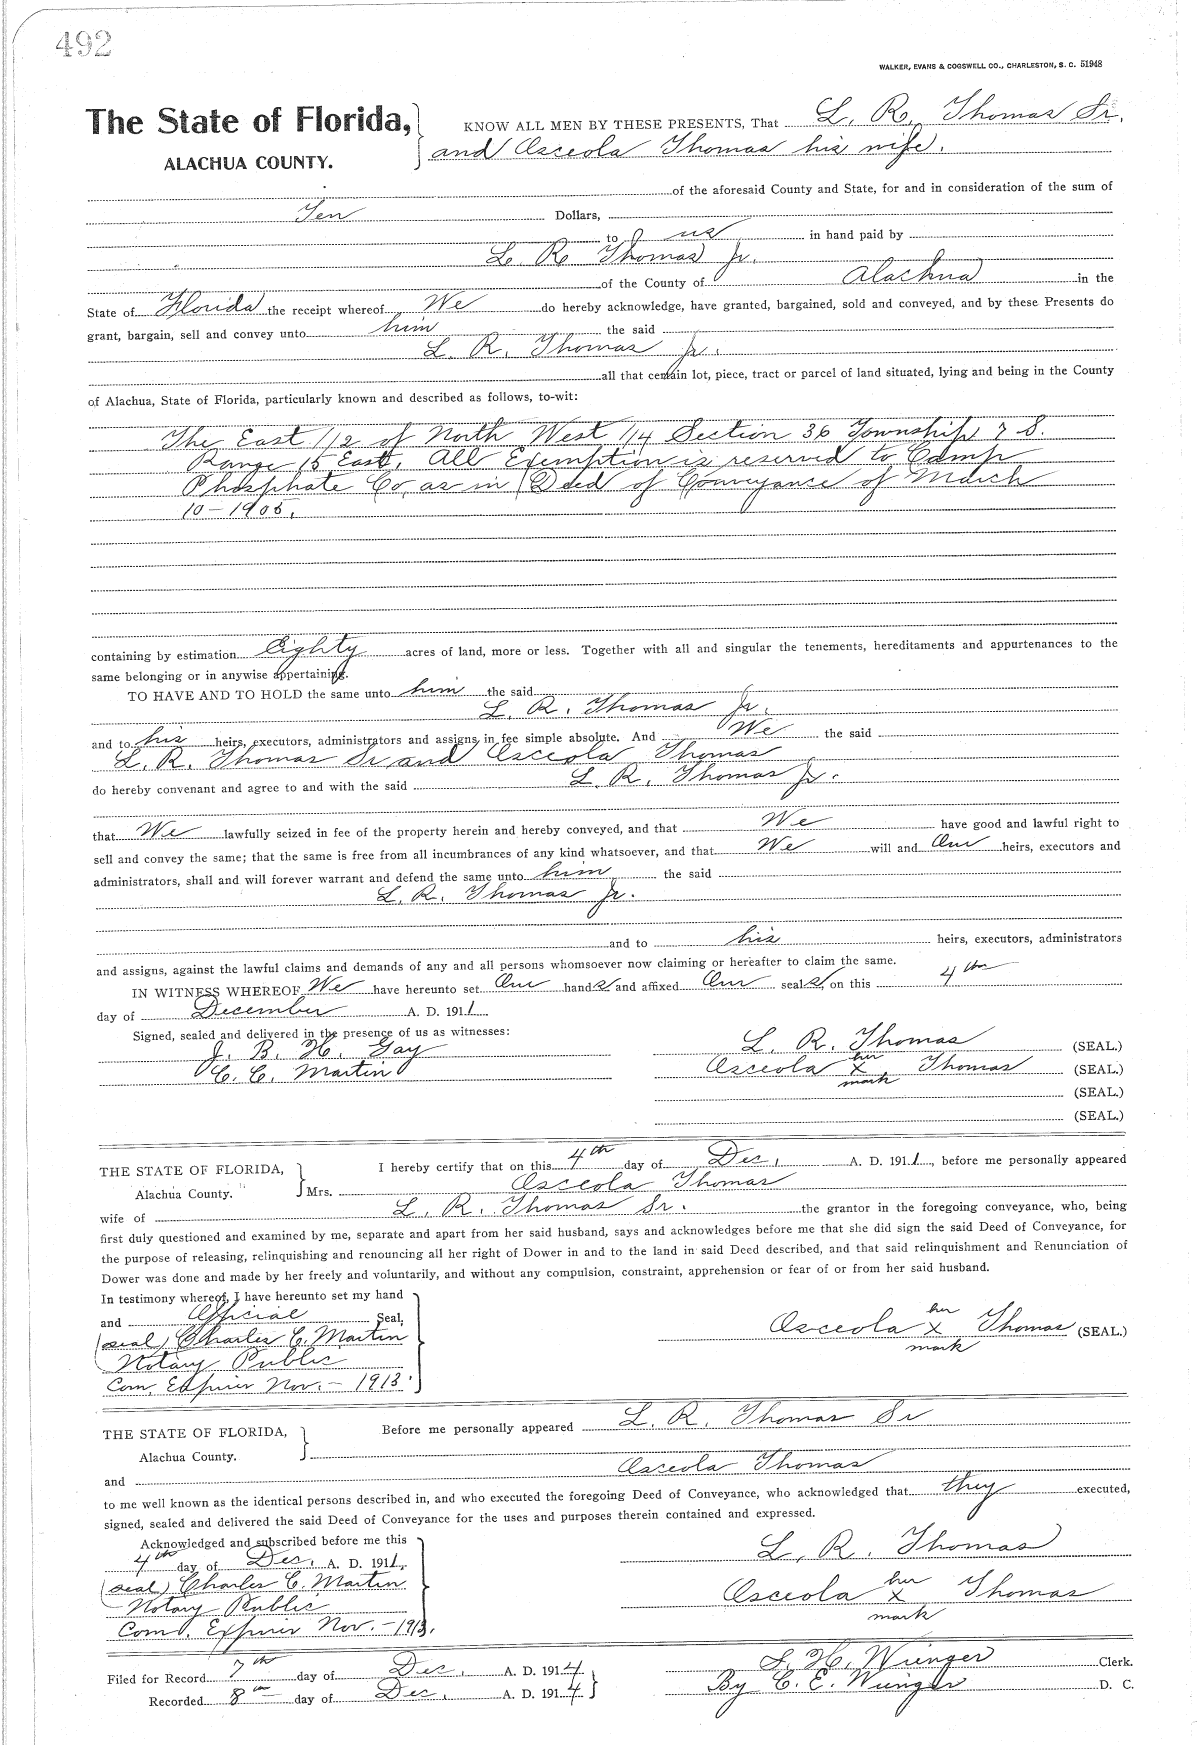 492
WALKER, EVANS & COGSWELL CO., CHARLESTON, S. C. 51948
The State of Florida,
ALACHUA COUNTY.
KNOW ALL MEN BY THESE PRESENTS, That L. R. Thomas Sr.
and Osceola Thomas his wife.
of the aforesaid County and State, for and in consideration of the sum of
Ten Dollars,
to us in hand paid by
L. R. Thomas Jr.
of the County of Alachua in the
State of Florida the receipt whereof We do hereby acknowledge, have granted, bargained, sold and conveyed, and by these Presents do
grant, bargain, sell and convey unto him the said
L. R. Thomas Jr.
all that certain lot, piece, tract or parcel of land situated, lying and being in the County
of Alachua, State of Florida, particularly known and described as follows, to-wit:
The East 1/2 of North West 1/4 Section 36 Township 7 S.
Range 15 East. All Exemption is reserved to Camp
Phosphate Co, as in Deed of Conveyance of March
10-1905.
containing by estimation Eighty acres of land, more or less. Together with all and singular the tenements, hereditaments and appurtenances to the
same belonging or in anywise appertaining.
TO HAVE AND TO HOLD the same unto him the said
L. R. Thomas Jr.
and to his heirs, executors, administrators and assigns in fee simple absolute. And We the said
L. R. Thomas Sr and Osceola Thomas
do hereby convenant and agree to and with the said L. R. Thomas Jr.
that We lawfully seized in fee of the property herein and hereby conveyed, and that We have good and lawful right to
sell and convey the same; that the same is free from all incumbrances of any kind whatsoever, and that We will and Our heirs, executors and
administrators, shall and will forever warrant and defend the same unto him the said
L. R. Thomas Jr.
and to his heirs, executors, administrators
and assigns, against the lawful claims and demands of any and all persons whomsoever now claiming or hereafter to claim the same.
IN WITNESS WHEREOF We have hereunto set Our hands and affixed Our seals on this 4th
day of December A. D. 1911
Signed, sealed and delivered in the presence of us as witnesses:
J. B. H. Gay
C. C. Martin
L. R. Thomas (SEAL.)
Osceola her x mark Thomas (SEAL.)
(SEAL.)
(SEAL.)
THE STATE OF FLORIDA,
Alachua County.
I hereby certify that on this 4th day of Dec. A. D. 1911, before me personally appeared
Mrs. Osceola Thomas
wife of L. R. Thomas Sr. the grantor in the foregoing conveyance, who, being
first duly questioned and examined by me, separate and apart from her said husband, says and acknowledges before me that she did sign the said Deed of Conveyance, for
the purpose of releasing, relinquishing and renouncing all her right of Dower in and to the land in said Deed described, and that said relinquishment and Renunciation of
Dower was done and made by her freely and voluntarily, and without any compulsion, constraint, apprehension or fear of or from her said husband.
In testimony whereof, I have hereunto set my hand
and Official Seal,
(seal) Charles C. Martin
Notary Public
Com. Expires Nov. - 1913.
Osceola her x mark Thomas (SEAL.)
THE STATE OF FLORIDA,
Alachua County.
Before me personally appeared L. R. Thomas Sr
and Osceola Thomas
to me well known as the identical persons described in, and who executed the foregoing Deed of Conveyance, who acknowledged that they executed,
signed, sealed and delivered the said Deed of Conveyance for the uses and purposes therein contained and expressed.
Acknowledged and subscribed before me this
4th day of Dec. A. D. 1911,
(seal) Charles C. Martin
Notary Public
Com. Expires Nov. - 1913.
L. R. Thomas
Osceola her x mark Thomas
Filed for Record 7th day of Dec. A. D. 1914
Recorded 8th day of Dec. A. D. 1914
S. H. Wienges Clerk.
By C. E. Wienges D. C.